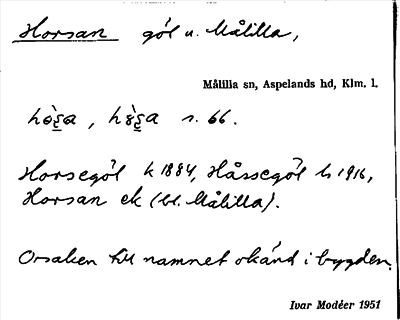 Horsan göl u. Målilla,
Målilla sn, Aspelands hd, Klm. l.
s. 66.
Horsegöl k 1884, Hårsegöl h 1916,
Horsan ek (bl. Målilla).
Orsaken till namnet okänd i bygden.
Ivar Modéer 1951